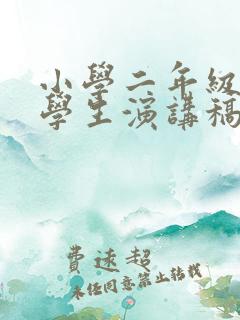 小學二年級
學生演講稿
費逑超
未經同意禁止轉載